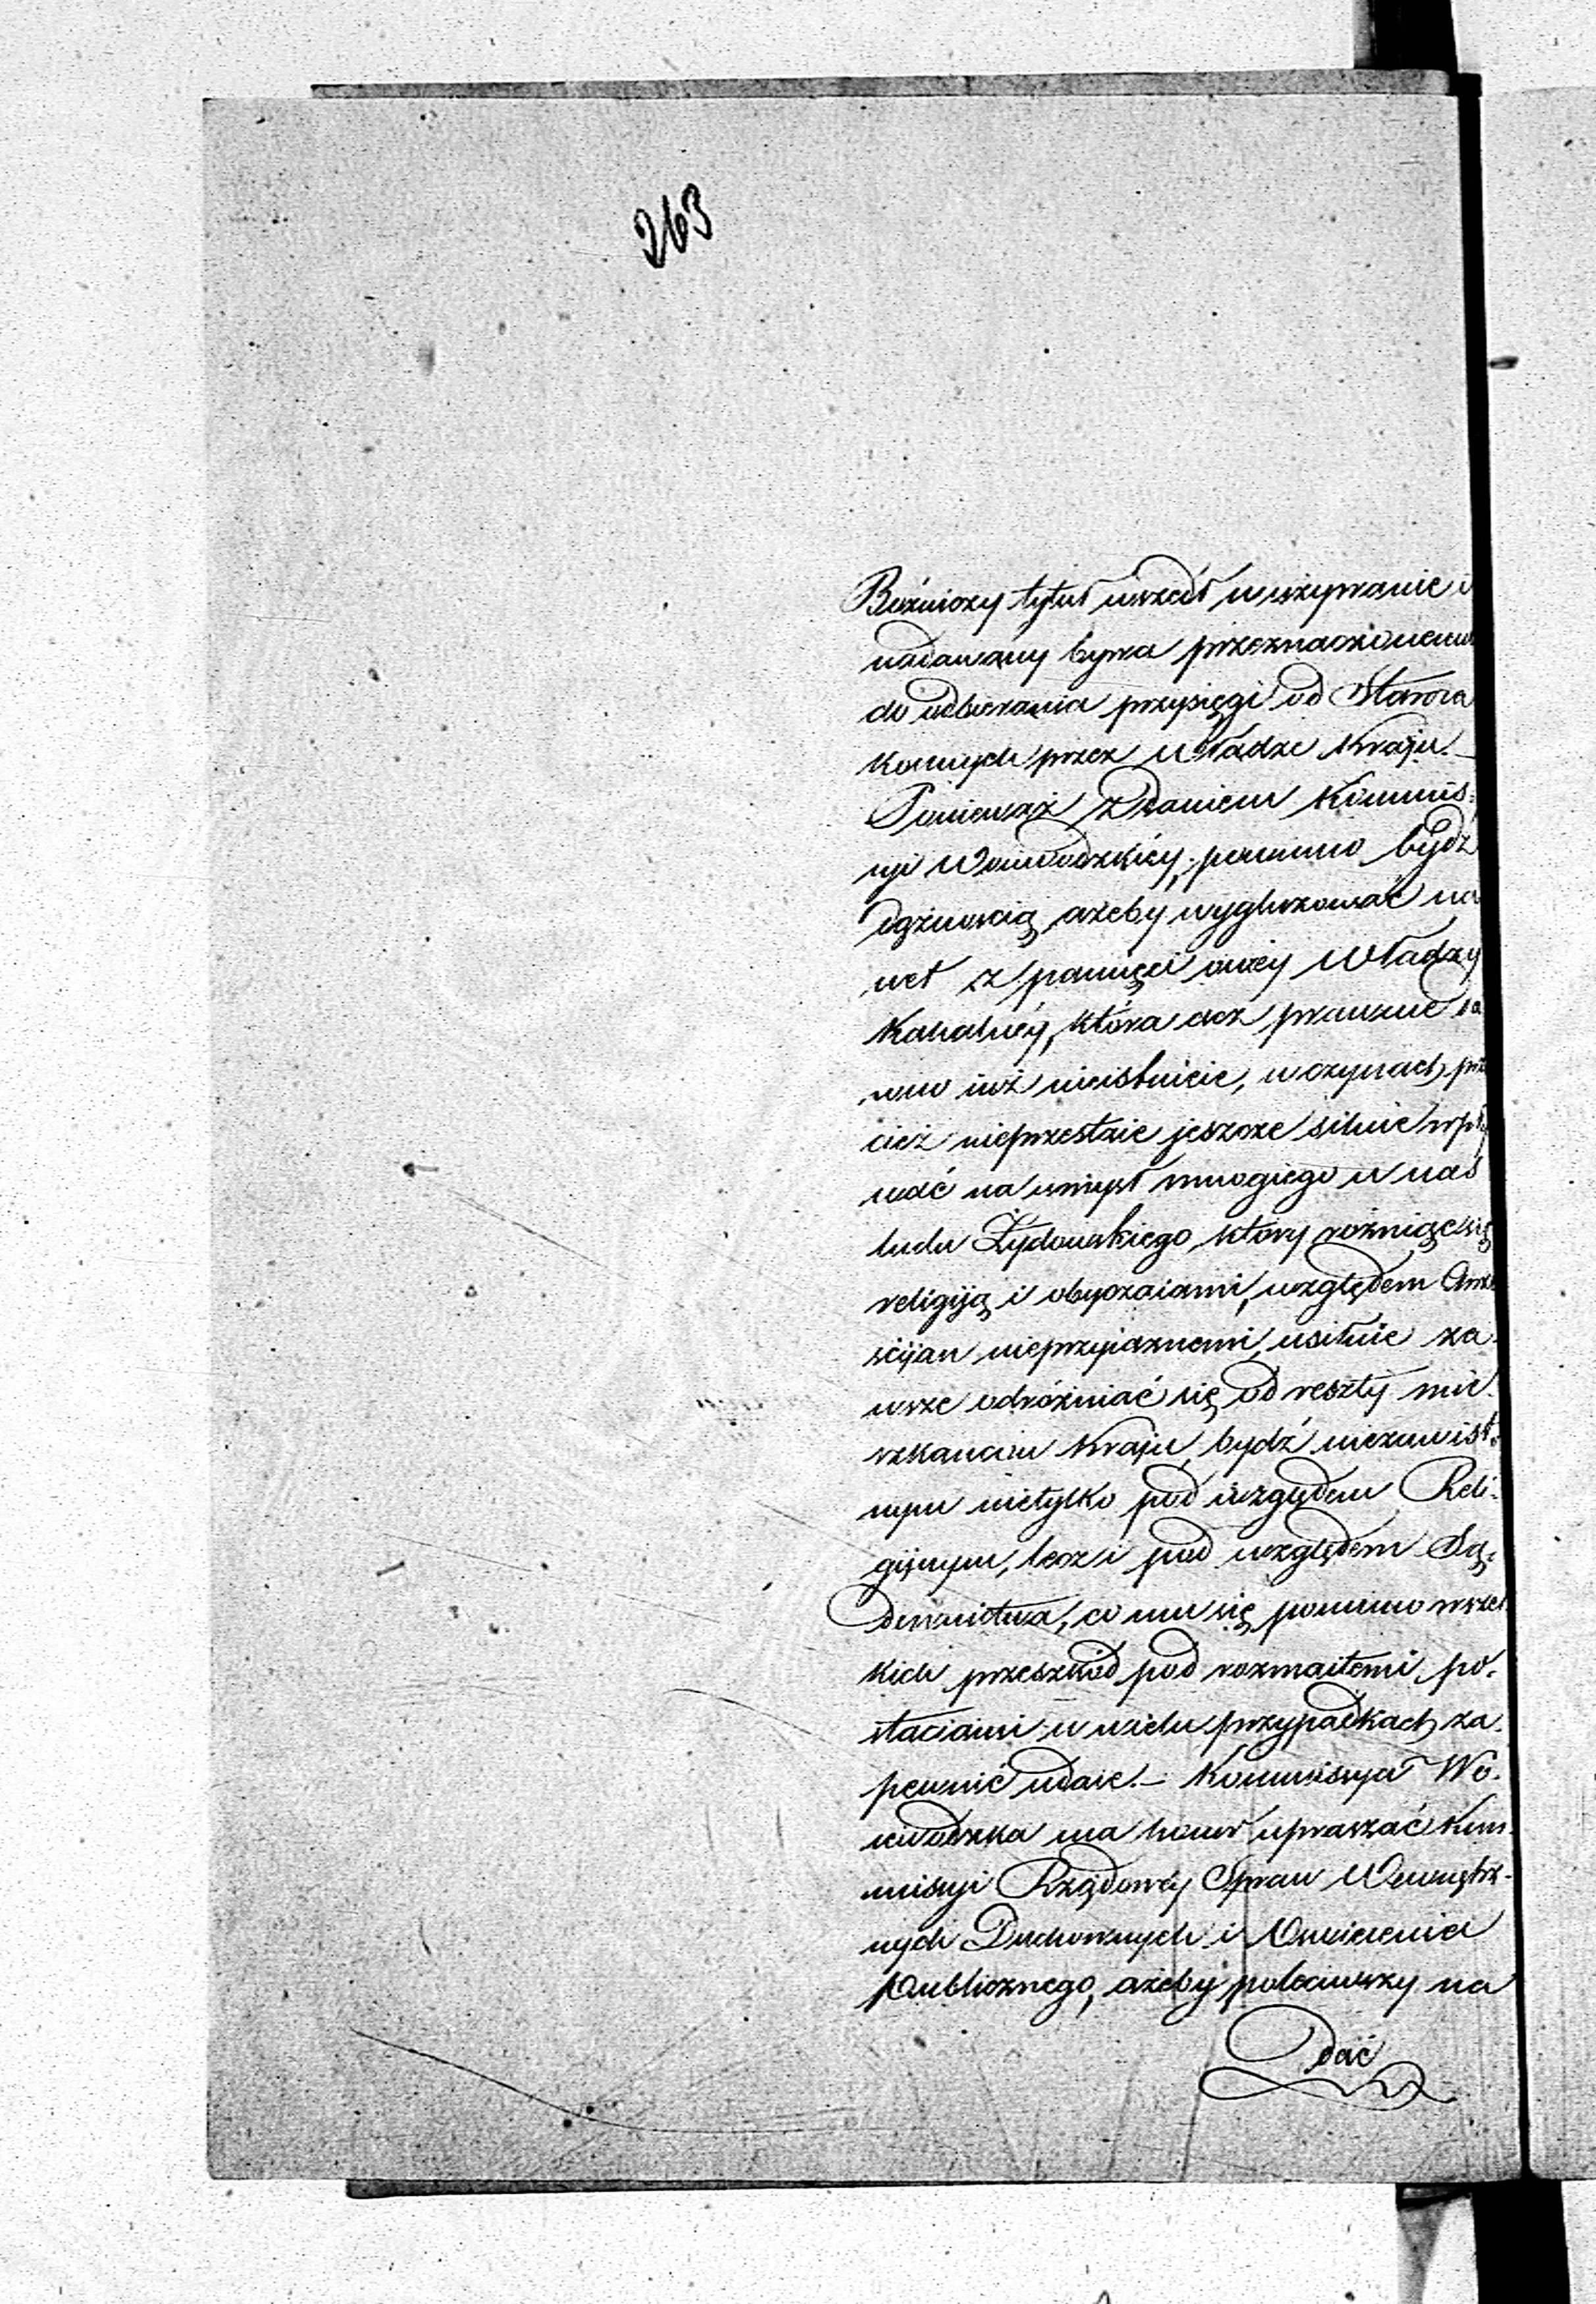 263
Bóźniczy tytuł wszedł w używanie i
nadawany bywa przeznaczonemu
do odbierania przysięgi od Staroza
konnych przez Władze Kraju. –
Ponieważ zdaniem Kommis:
syi Woiewodzkiéy, powinno bydź
dążnością ażeby wygluzować na
wet z pamięci owéy Władzy
Kahalnéy, która acz prawnie
iuż nieistnieie, w czynach prze
cież nieprzestaie jeszcze silnie wpły
wać na umysł mnogiego w nas
ludu Żydowskiego który rożniąc się
religiją i obyczaiami, względem Chrze
ścijan nieprzyiaznemi, usiłuie za
wsze odróżniać się od reszty mie
szkancow Kraju, bydź niezawisł:
nym nietylko pod względem Reli:
gijnym, lecz i pod względem Są:
downictwa, co mu się pomimo wszel
kich przeszkód pod rozmaitemi po:
staciami w wielu przypadkach za
pewnić udaie. – Kommissya Wo:
iewodzka ma honor upraszać Kom
missyi Rządowéy Spraw Wewnętrz-
nych Duchownych i Oświecenia
Publicznego, ażeby poleciwszy na
dać